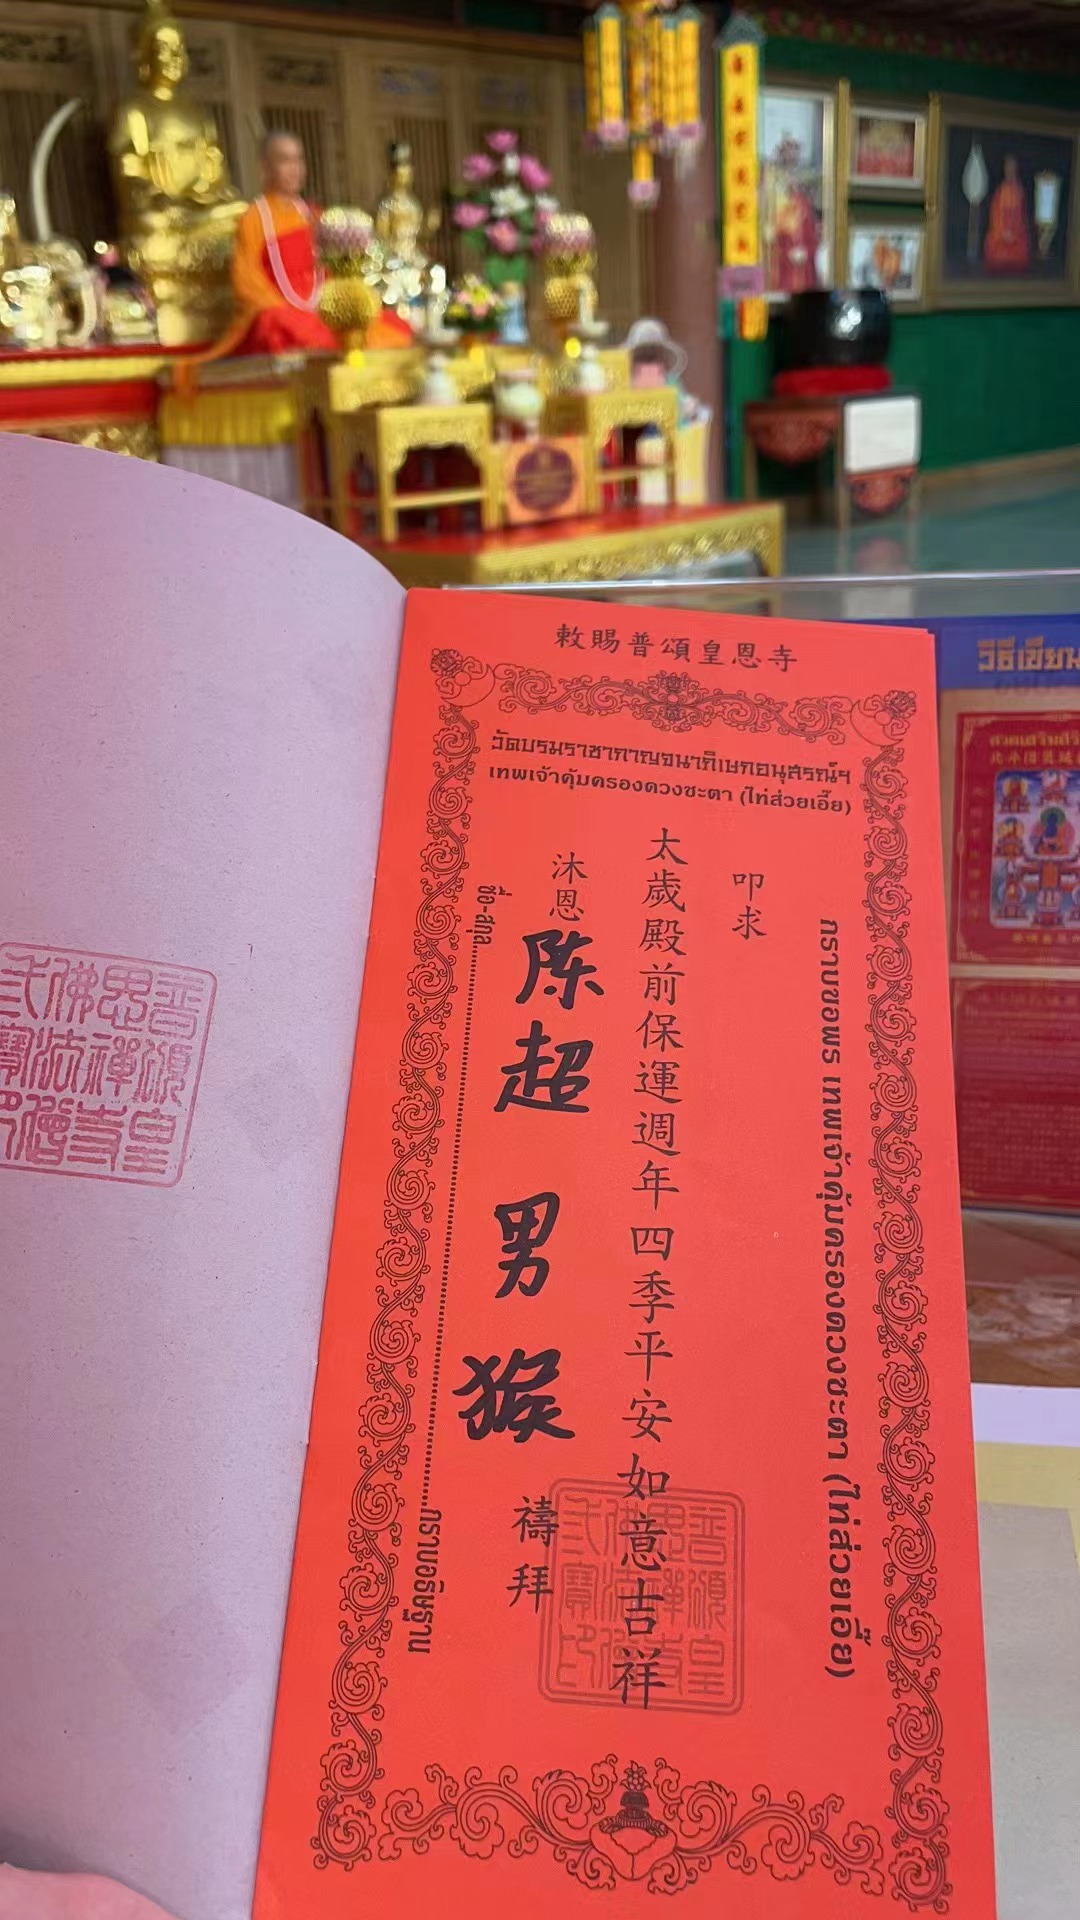 敕賜普頌皇恩寺
วัดบรมราชากาญจนาภิเษกอนุสรณ์ฯ
เทพเจ้าคุ้มครองดวงชะตา (ไท่ส่วยเอี๊ย)
กราบขอพร เทพเจ้าคุ้มครองดวงชะตา (ไท่ส่วยเอี๊ย)
叩求
太歲殿前保運週年四季平安如意吉祥
沐恩
陈超 男 猴
禱拜
ชื่อ-สกุล......กราบอธิษฐาน
วิธีเขียน